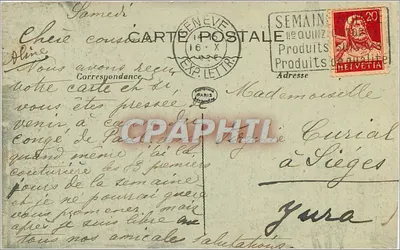 Samedi
Chère cousine
Aline
CARTE POSTALE
GENEVE
16 X
EXP. LETTR
SEMAINE
IIe QUINZ
Produits
Produits
20
HELVETIA
Correspondance
Adresse
Nous avons reçu
votre carte et si
vous êtes pressée
venez
congé de
quand même j'ai la
couturière les 3 premiers
jours de la semaine
et je ne pourrai guère
vous promener mais
après je suis libre
tous nos amicales salutations
PARIS
Mademoiselle
Curial
à Siéges
Jura
CPAPHIL